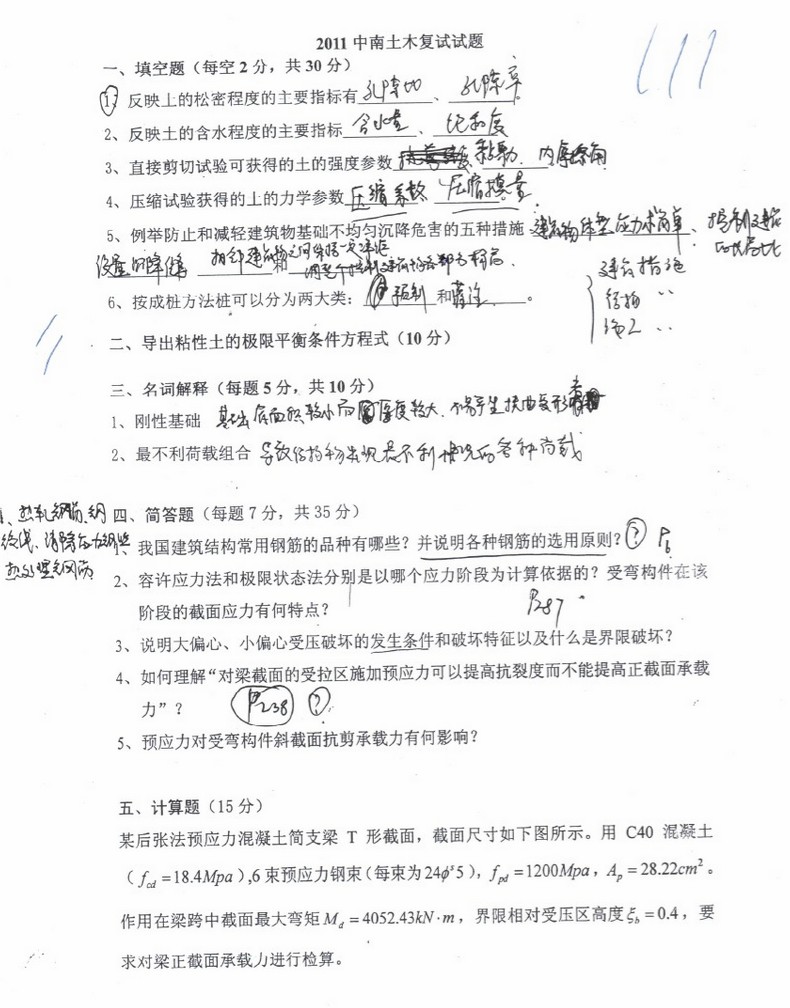 2011 中南土木复试试题
一、填空题（每空 2 分，共 30 分）
1、反映上的松密程度的主要指标有 孔隙比 、 孔隙率 。
2、反映土的含水程度的主要指标 含水量 、 饱和度
3、直接剪切试验可获得的土的强度参数 粘聚力、内摩擦角
4、压缩试验获得的上的力学参数 压缩系数 压缩模量 。
5、例举防止和减轻建筑物基础不均匀沉降危害的五种措施 建筑物体型应力求简单、控制建筑
设置沉降缝 相邻建筑物之间保持一定距 和
建筑措施
结构 〃
施工 〃
6、按成桩方法桩可以分为两大类： 预制 和 灌注 。
二、导出粘性土的极限平衡条件方程式（10 分）
三、名词解释（每题 5 分，共 10 分）
1、刚性基础 基础底面积较小而厚度较大、不易产生挠曲变形
2、最不利荷载组合 导致结构物出现最不利情况的各种荷载
四、简答题（每题 7 分，共 35 分）
1、热轧钢筋、钢
绞线、消除应力钢丝
热处理钢筋
我国建筑结构常用钢筋的品种有哪些？并说明各种钢筋的选用原则？ ? P6
2、容许应力法和极限状态法分别是以哪个应力阶段为计算依据的？受弯构件在该
阶段的截面应力有何特点？ P287
3、说明大偏心、小偏心受压破坏的发生条件和破坏特征以及什么是界限破坏？
4、如何理解“对梁截面的受拉区施加预应力可以提高抗裂度而不能提高正截面承载
力”？ P238 ?
5、预应力对受弯构件斜截面抗剪承载力有何影响？
五、计算题（15 分）
某后张法预应力混凝土简支梁 T 形截面，截面尺寸如下图所示。用 C40 混凝土
（f_cd =18.4Mpa）,6 束预应力钢束（每束为 24φ^s5），f_pd =1200Mpa，A_p = 28.22cm²。
作用在梁跨中截面最大弯矩 M_d = 4052.43kN·m，界限相对受压区高度 ξ_b = 0.4，要
求对梁正截面承载力进行检算。